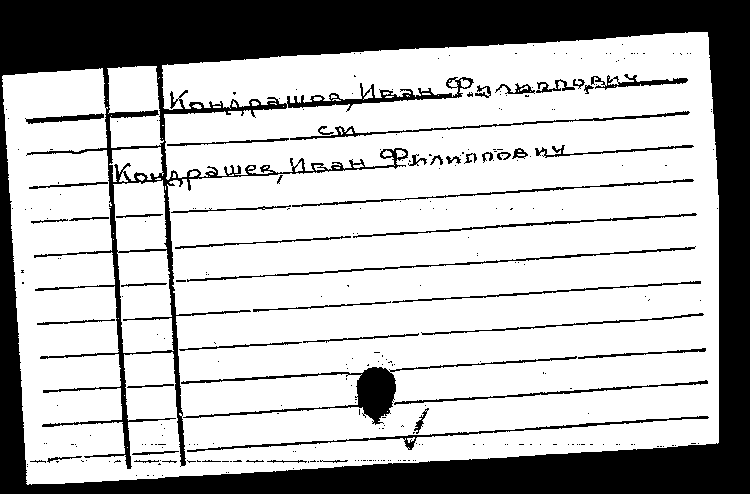 Кондрашов, Иван Филиппович
см
Кондрашев, Иван Филиппович